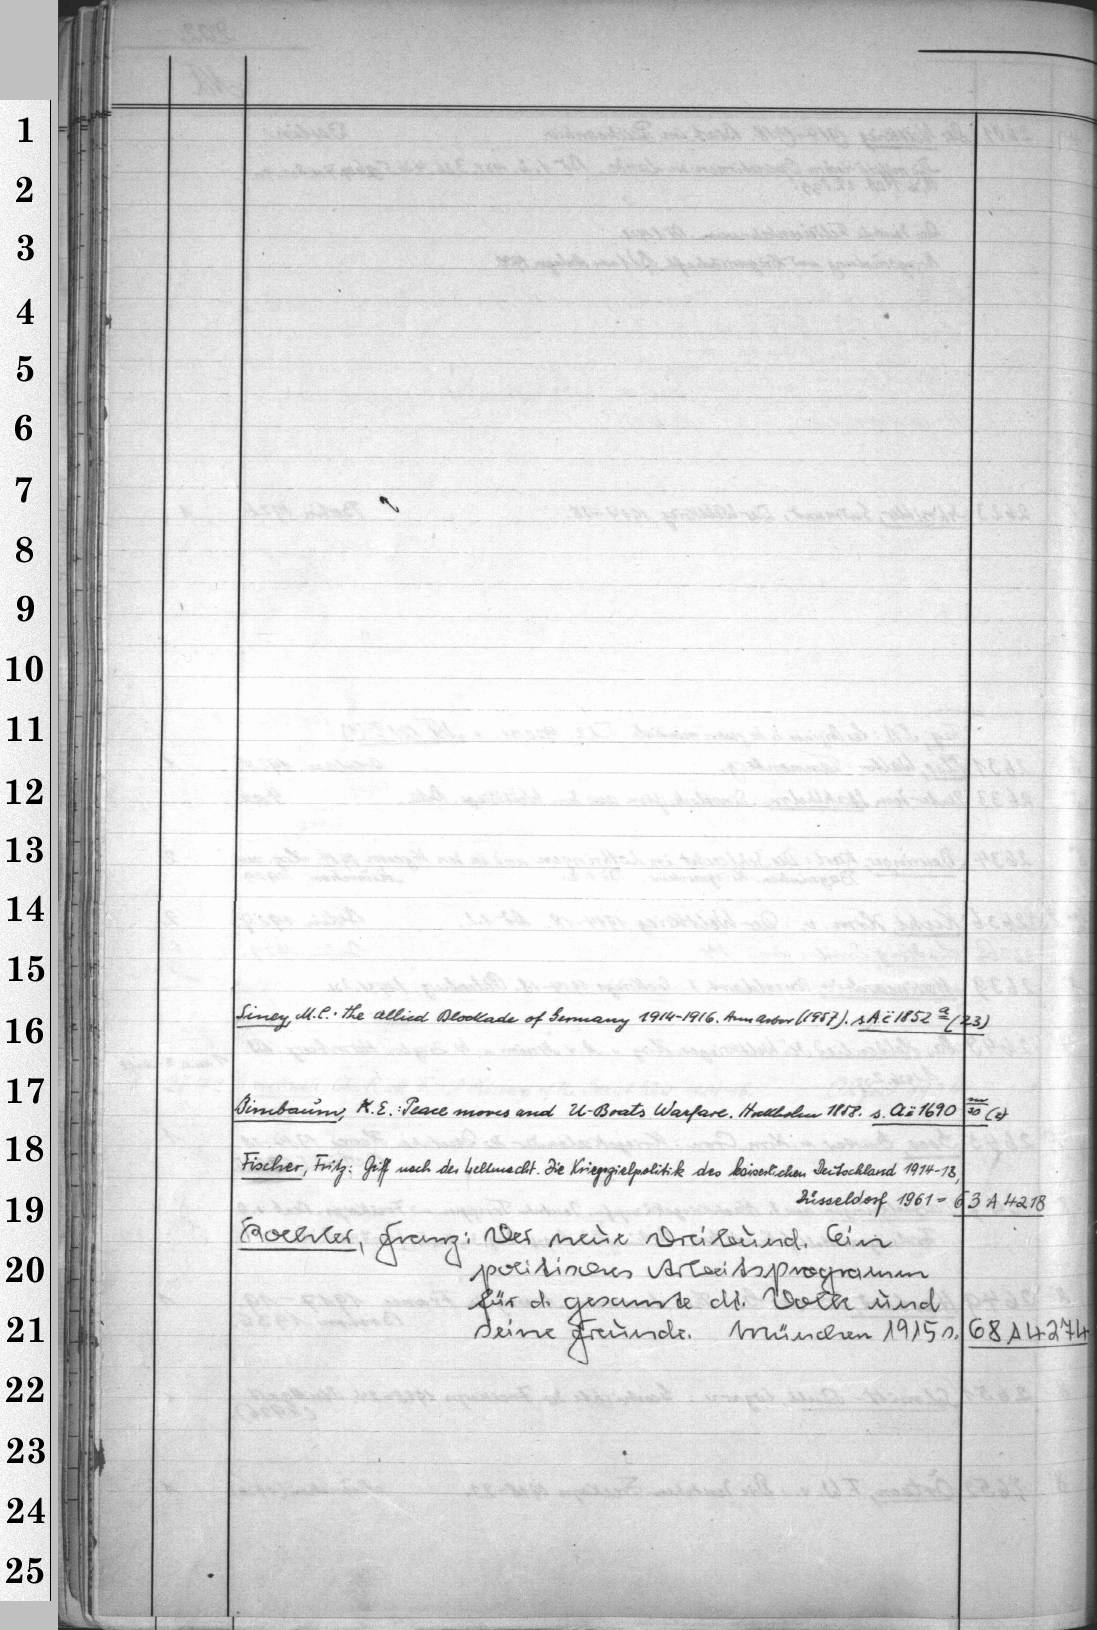 1
2
3
4
5
6
7
8
9
10
11
12
13
14
15
16
17
18
19
20
21
22
23
24
25
Siney, M.C.: The allied Blockade of Germany 1914-1916. Ann Arbor (1957). s Aë 1852 a (23)
Birnbaum, K.E.: Peace moves and U-Boats Warfare. Stockholm 1958. s. Aë 1690 m/20 (2)
Fischer, Fritz: Griff nach der Weltmacht. Die Kriegszielpolitik des kaiserlichen Deutschland 1914-18,
Düsseldorf 1961 = 63 A 4218
Koehler, Franz: Der neue Dreibund. Ein
politisches Arbeitsprogramm
für d. gesamte dt. Volk und
seine Freunde. München 1915 s. 68 A 4274